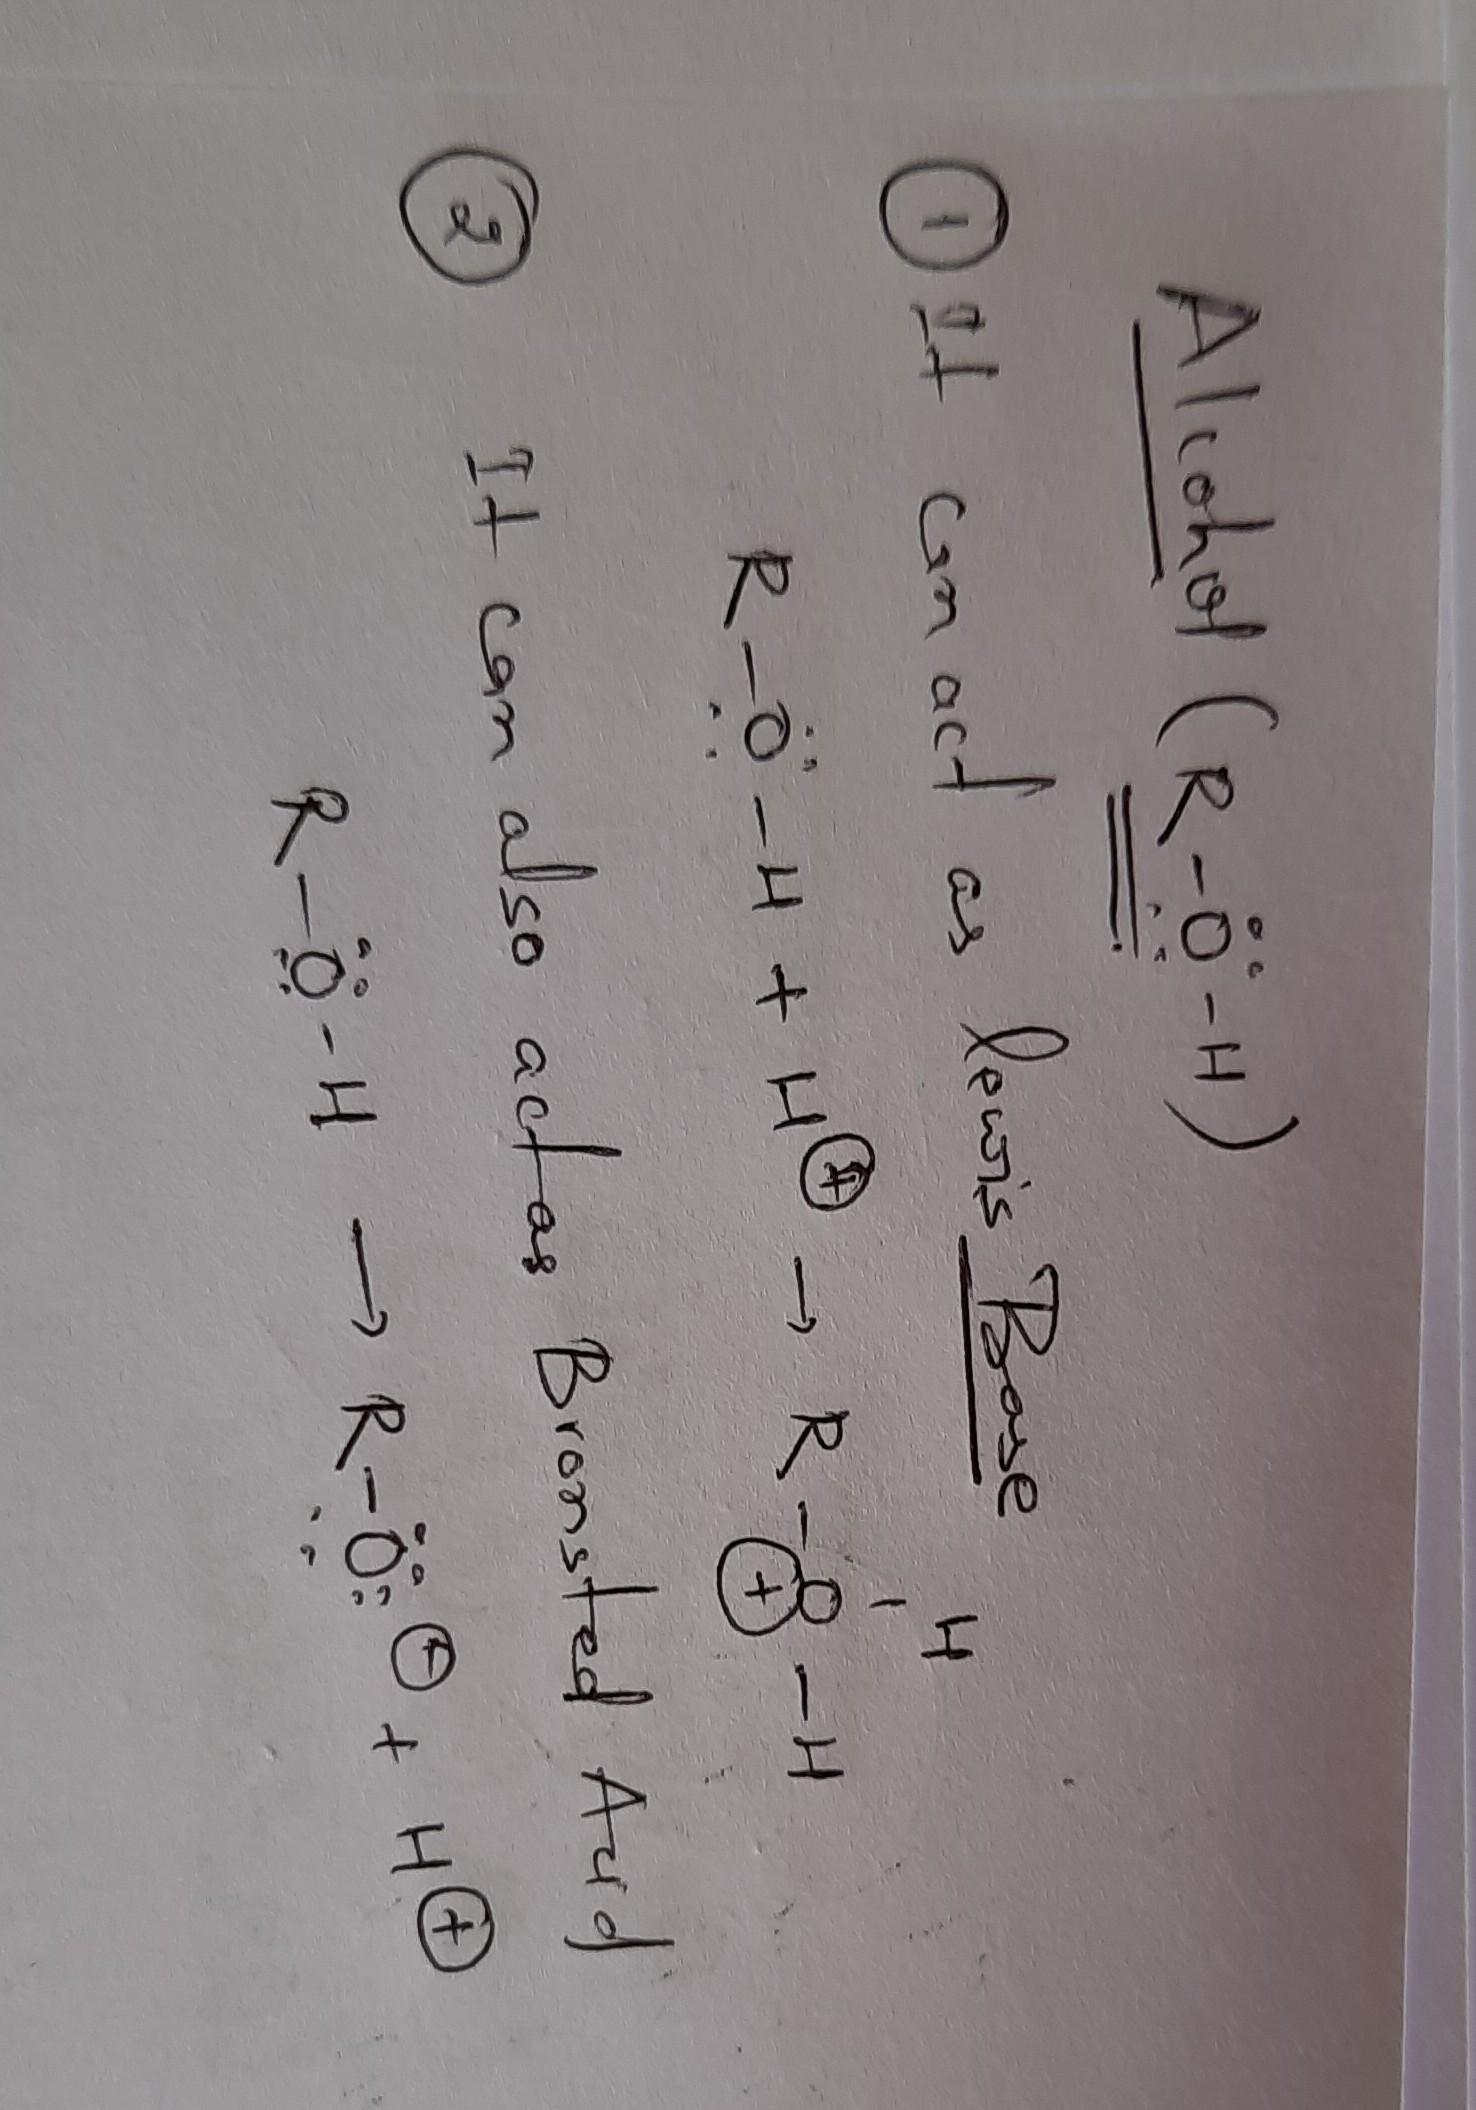 Alcohol (R-Ö-H)
① It can act as lewis Base
H
R-Ö-H + H⊕ → R-O-H
⊕
② It can also act as Bronsted Acid
R-Ö-H → R-Ö:⊖ + H⊕